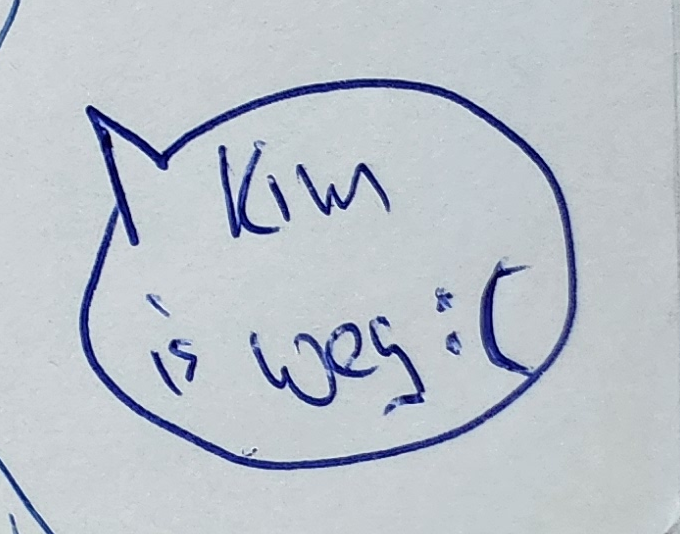 Kim
is weg :(